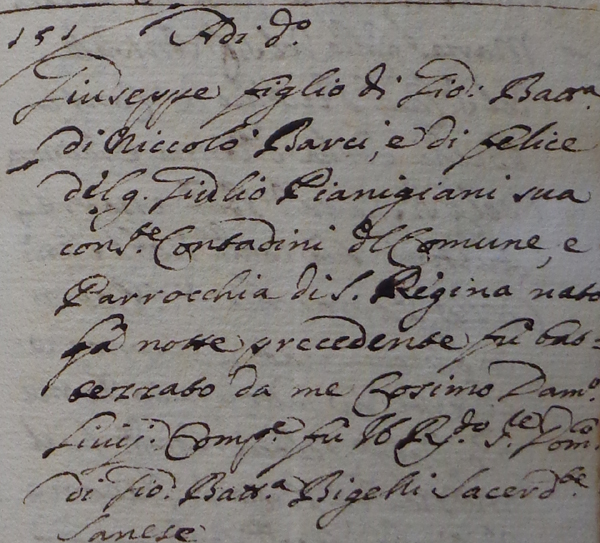 151 Adi d.o
Giuseppe figlio di Gio: Batt.a
di Niccolò Barci, e di felice
del q. Giulio Pianigiani sua
cons.te Contadini del Comune, e
Parrocchia di S. Regina nato
la notte precedente fù bat=
tezzato da me Cosimo Dam.o
Livij: Comp.e fù Il R.do S.re Dom.co
di Gio: Batt.a Bigelli Sacerd.te
Sanese